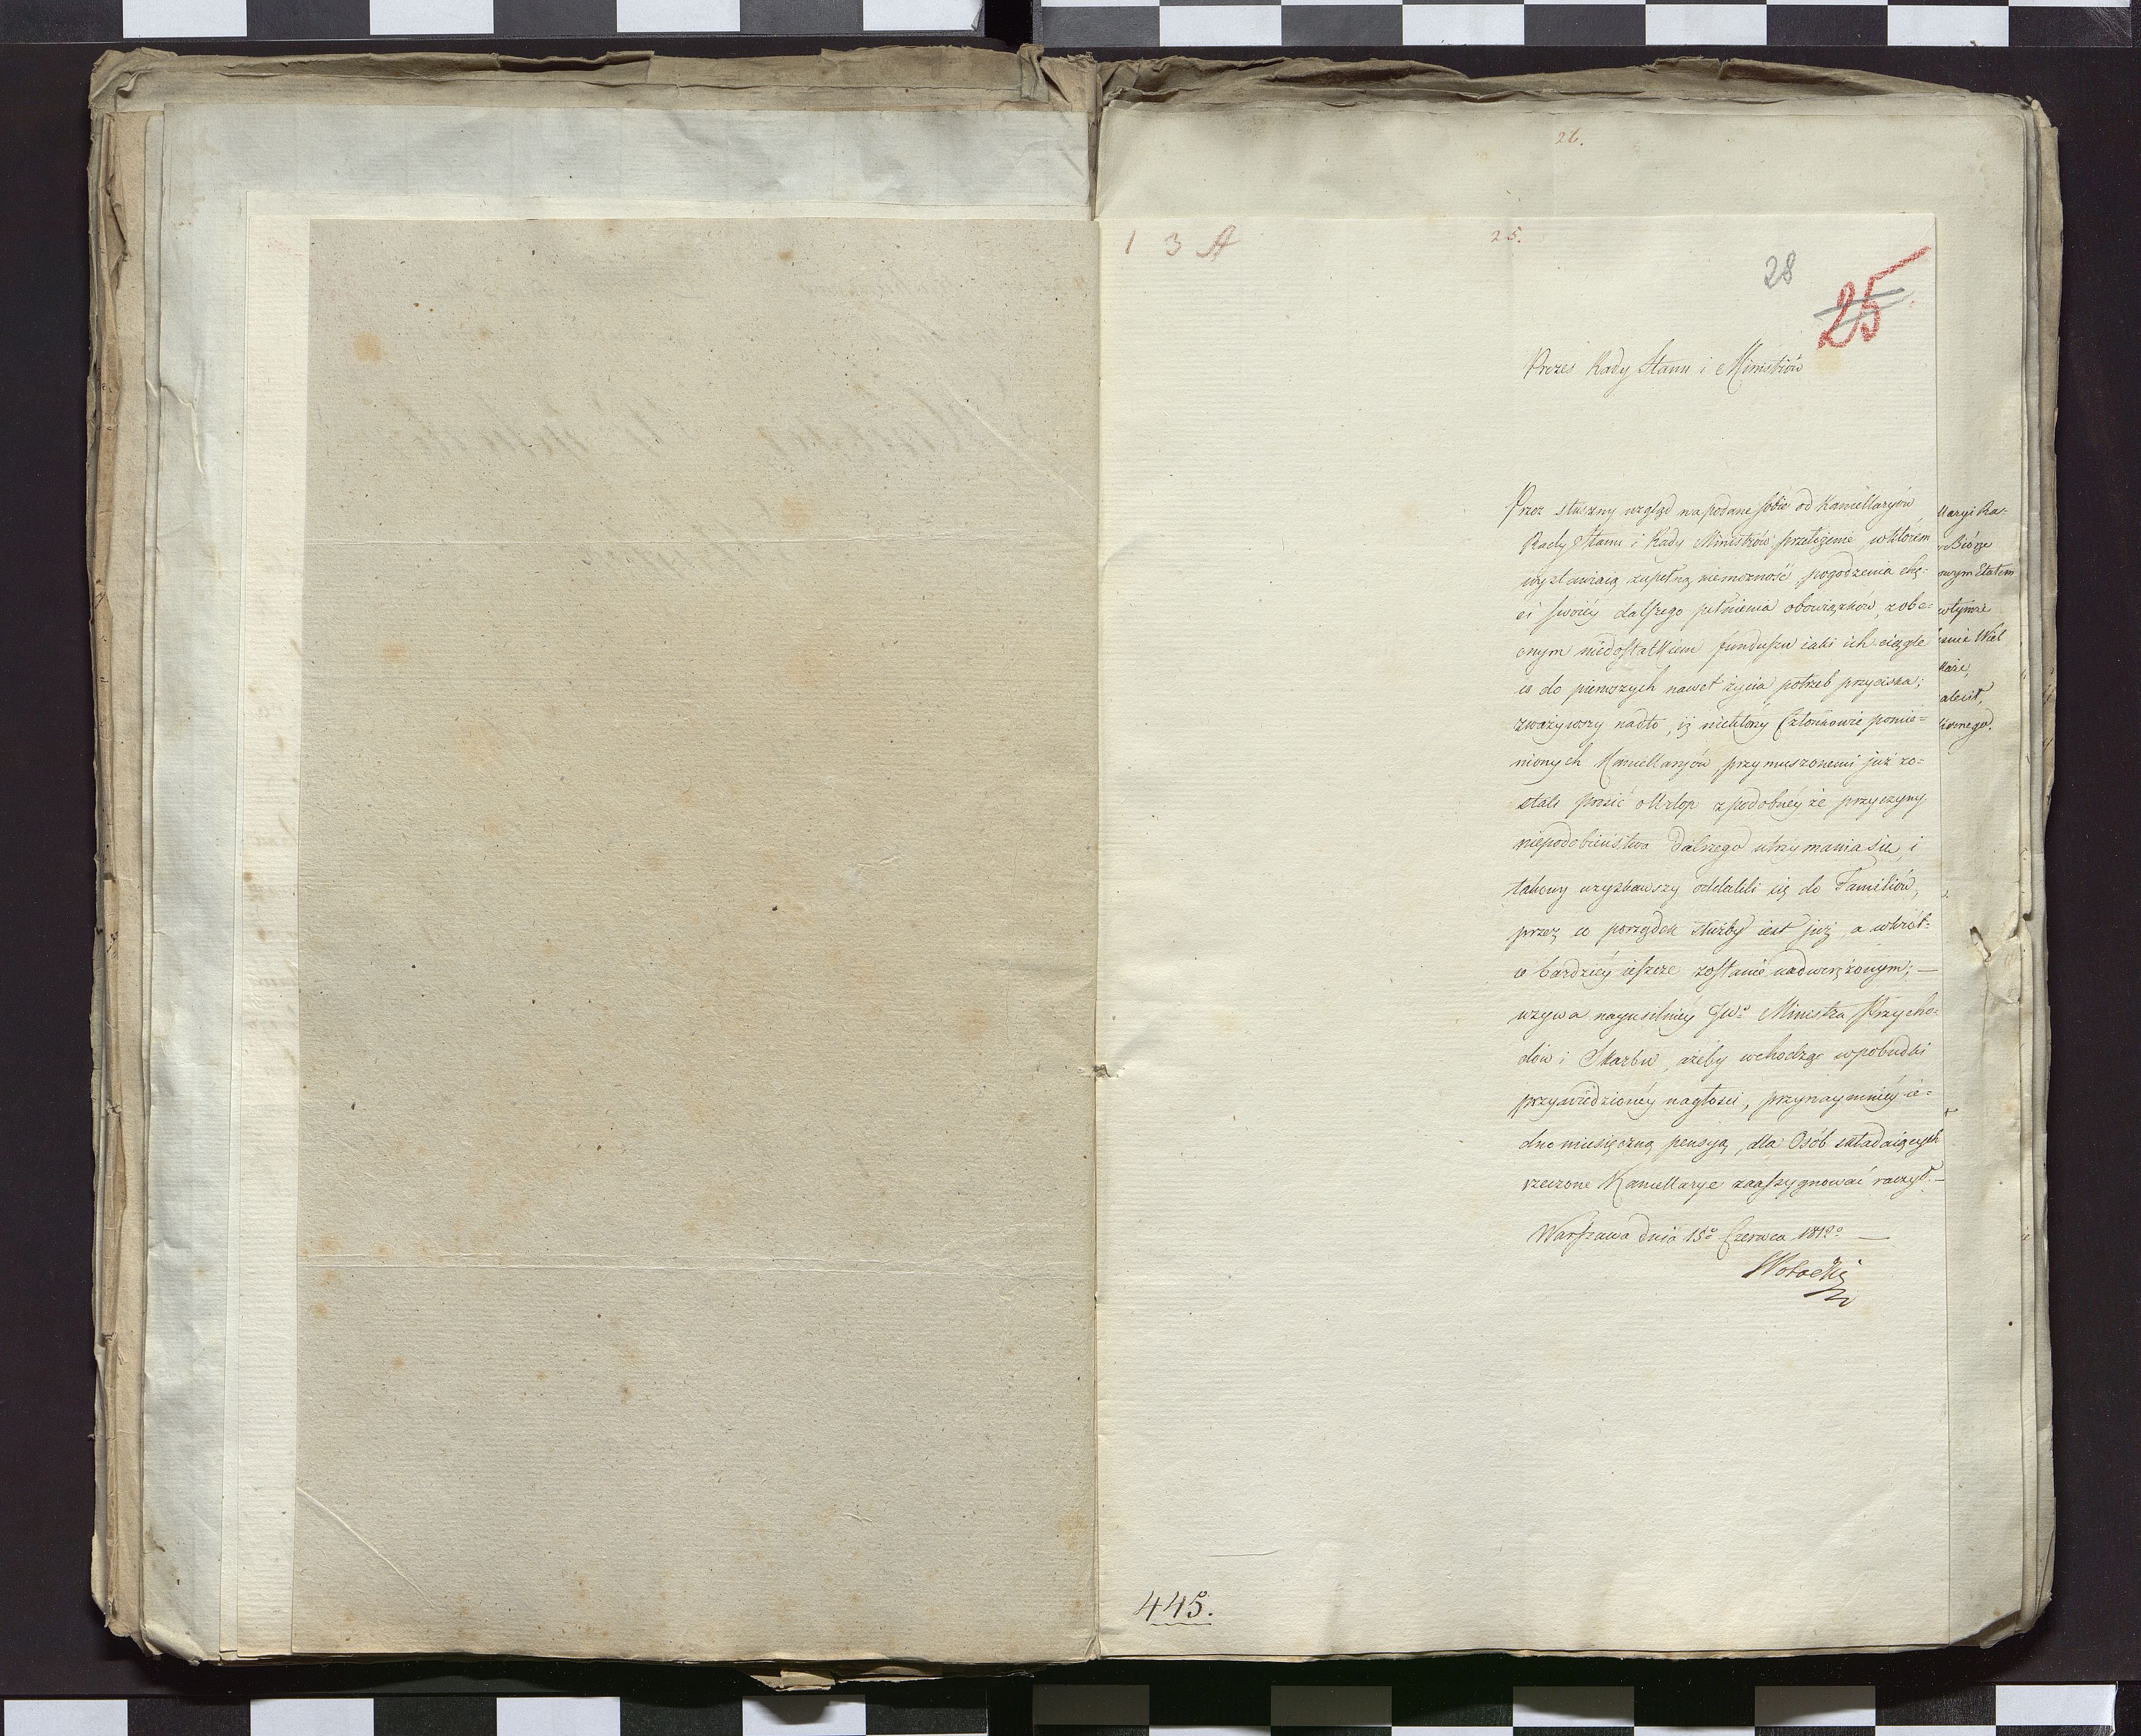 26.
1 3 A
25.
28
25
Prezes Rady Stanu i Ministrów
Przez słuszny wzgląd na podane sobie od Kancellaryów
Rady Stanu i Rady Ministrów przełożenie, w którém
wystawiaią zupełną niemożność pogodzenia chę-
ci swoiéy dalszego pełnienia obowiązków, z obe-
cnym niedostatkiem funduszu iaki ich ciągle
co do pierwszych nawet życia potrzeb przyciska;
zważywszy nadto, iż niektórzy Członkowie pomie-
nionych Kancellaryów, przymuszonemi już zo-
stali prosić o Urlop z podobnéy że przyczyny
niepodobieństwa dalszego utrzymania się, i
takowy uzyskawszy oddalili się do Familiów,
przez co porządek służby iest już, a wkrót-
ce bardziéy ieszcze zostanie nadwerężonym; —
wzywa nayusilniéy JWo Ministra Przycho-
dów i Skarbu, ażeby wchodząc w pobudki
przywiedzionéy nagłości, przynaymniéy ie-
dno miesięczną pensyą, dla Osób składaiących
rzeczone Kancellarye zaassygnować raczył. —
Warszawa dnia 15o Czerwca 1812o —
SPotocki
llaryi Ra-
Biórze
owym Etatem
w tymże
445.